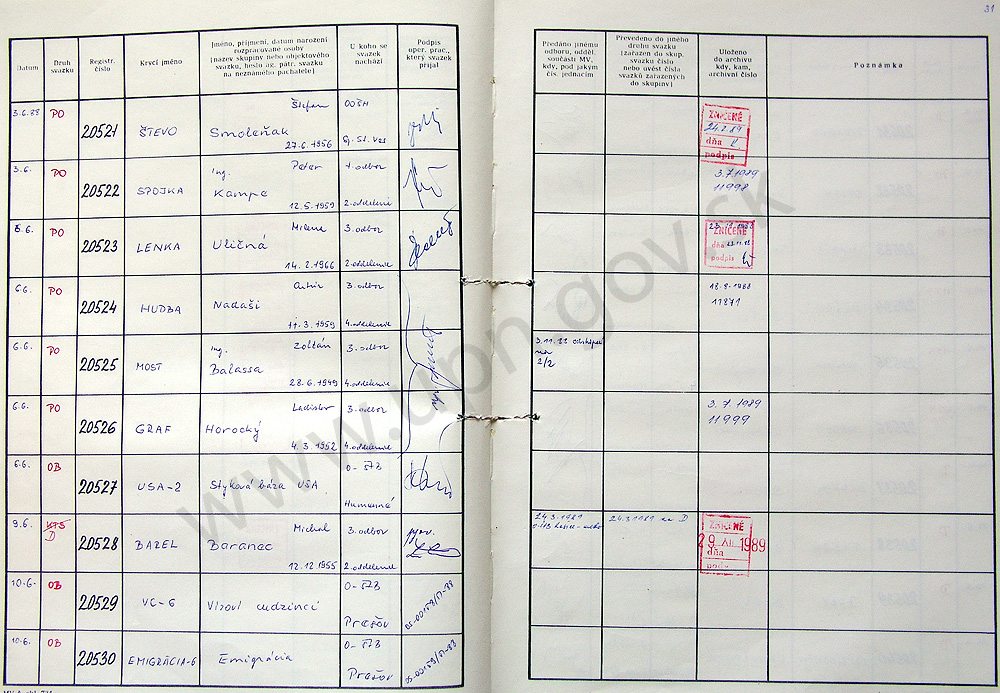 31
Datum
Druh
svazku
Registr.
číslo
Krycí jméno
Jméno, příjmení, datum narození
rozpracované osoby
(název skupiny nebo objektového
svazku, heslo ag. pátr. svazku
na neznámého pachatele)
U koho se
svazek
nachází
Podpis
oper. prac.,
který svazek
přijal
Předáno jinému
odboru, odděl.
součásti MV,
kdy, pod jakým
čís. jednacím
Převedeno do jiného
druhu svazku
(zařazen do skup.
svazku číslo
nebo uvést čísla
svazků zařazených
do skupiny)
Uloženo
do archivu
kdy, kam,
archivní číslo
Poznámka
3.6.88 PO 20521 ŠTEVO
Štefan
Smoleňak
27.6.1956
OOŠH
Sp. St. Ves
ZNIČENÉ
24.7.89
dňa
podpis
3.6. PO 20522 SPOJKA
Ing. Peter
Kampe
12.5.1959
1. odbor
2. oddelenie
3.7.1989
11998
6.6. PO 20523 LENKA
Milena
Uličná
14.2.1966
3. odbor
2. oddelenie
ZNIČENÉ
dňa
podpis
6.6. PO 20524 HUDBA
Nadaši
11.3.1959
3. odbor
4. oddelenie
18.8.1988
11871
6.6. PO 20525 MOST
Ing. Zoltán
Balassa
28.6.1949
3. odbor
4. oddelenie
3.11.88
2/2
6.6. PO 20526 GRAF
Ladislav
Horocký
4.3.1952
3. odbor
4. oddelenie
3.7.1989
11999
6.6. OB 20527 USA-2
Styková báza USA
O-ŠTB
Humenné
9.6. D 20528 BAZEL
Michal
Baranec
12.12.1955
3. odbor
2. oddelenie
24.3.1989
24.3.1989 na D
ZNIČENÉ
29 XII 1989
dňa
10.6. OB 20529 VC-6
Vízoví cudzinci
O-ŠTB
Prešov
OS-00159/ST-88
10.6. OB 20530 EMIGRÁCIA-6
Emigrácia
O-ŠTB
Prešov
OS-00159/ST-88
www.upn.gov.sk